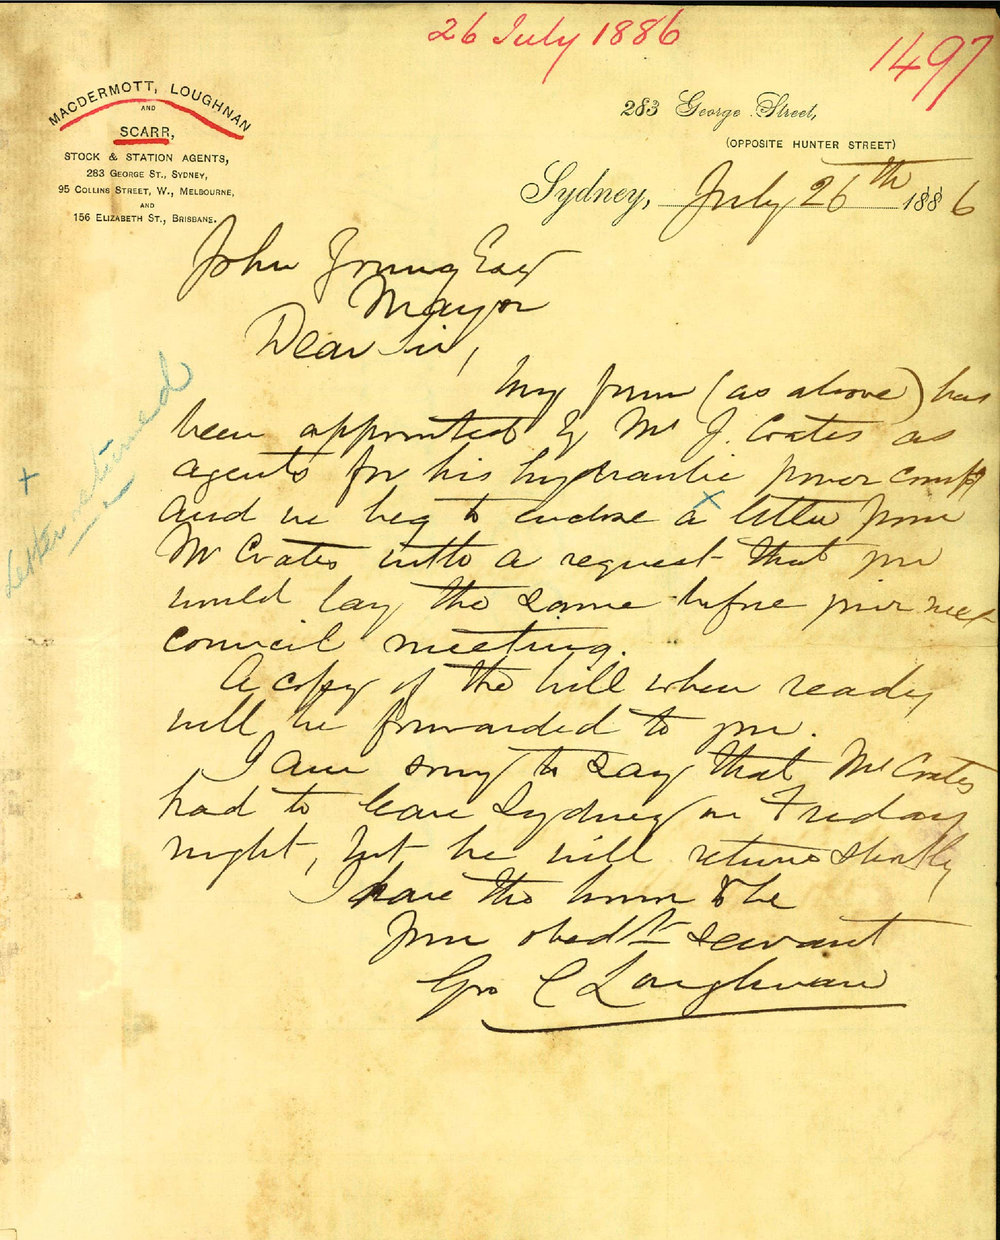 26 July 1886
1497
MACDERMOTT, LOUGHNAN
AND
SCARR,
STOCK & STATION AGENTS,
283 GEORGE ST., SYDNEY,
95 COLLINS STREET, W., MELBOURNE,
AND
156 ELIZABETH ST., BRISBANE.
283 George Street,
(OPPOSITE HUNTER STREET)
Sydney, July 26th 1886
John Young Esq
Mayor
Dear Sir,
My firm (as above) has
been appointed by Mr J. Coates as
agents for his hydraulic power compy
and we beg to enclose a x letter from
Mr Coates with a request that you
would lay the same before your next
council meeting.
A copy of the bill when ready
will be forwarded to you.
I am sorry to say that Mr Coates
had to leave Sydney on Friday
night, but he will return shortly
I have the honor to be
Your obedt servant
Geo C Loughnan
+ Letter returned